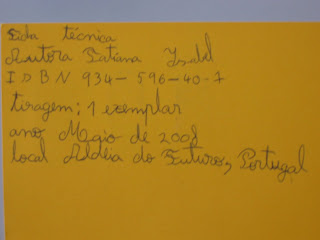 Fida técnica
Autora Tatiana Isabel
ISBN 934-596-40-7
tiragem: 1 exemplar
ano Maio de 2008
local Aldeia do Futuro, Portugal